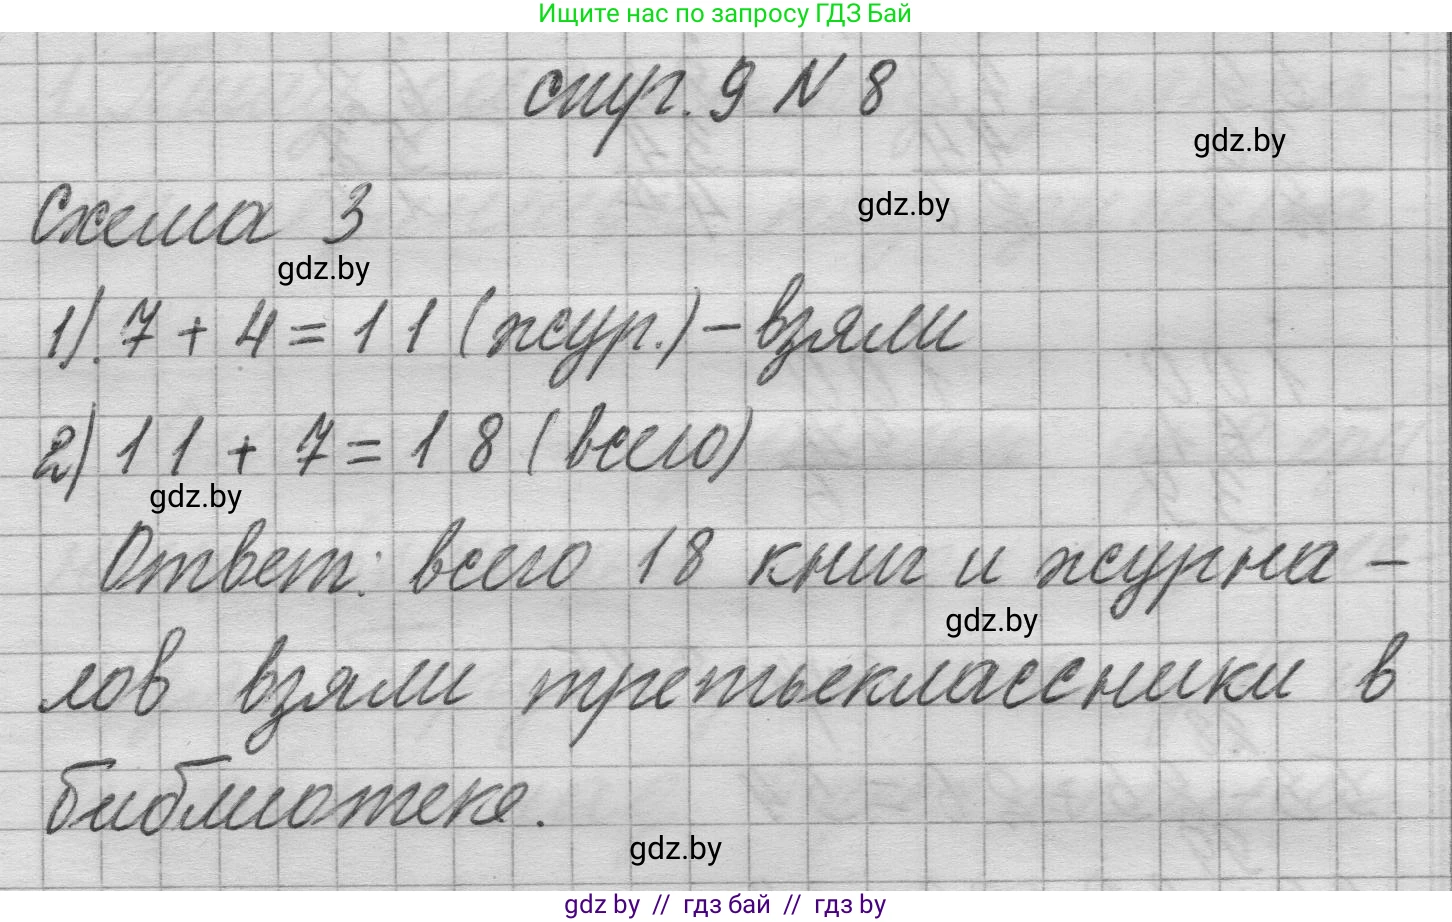 Ищите нас по запросу ГДЗ Бай
стр. 9 № 8
gdz.by
Схема 3
gdz.by
gdz.by
1). 7 + 4 = 11 (жур.) – взяли
2) 11 + 7 = 18 (всего)
gdz.by
Ответ: всего 18 книг и журна-
gdz.by
лов взяли третьеклассники в
библиотеке.
gdz.by
gdz by // гдз бай // гдз by